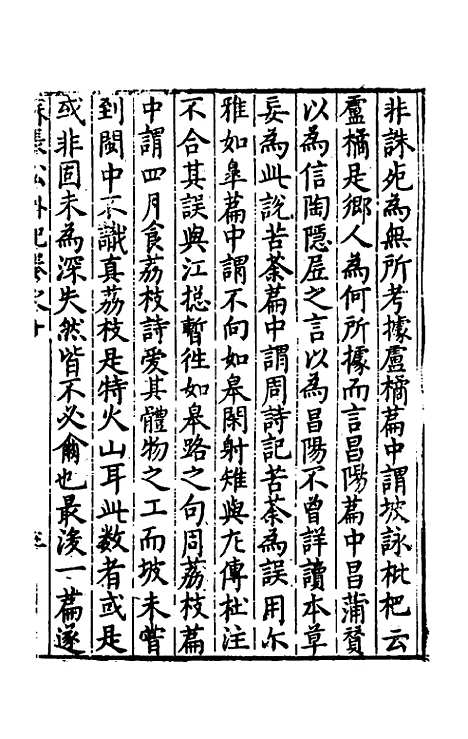 非誅死為無所考據盧橘篇中謂坡詠枇杷云
盧橘是鄉人為何所據而言昌陽篇中昌蒲贊
以為信陶隱居之言以為昌陽不曾詳讀本草
妄為此說苦荼篇中謂周詩記苦荼為誤用尔
雅如皐篇中謂不向如皋閑射雉與左傳杜注
不合其誤與江揔暫徃如皋路之句周荔枝篇
中謂四月食荔枝詩愛其體物之工而坡未甞
到閩中不識真荔枝是特火山耳此数者或是
或非固未為深失然皆不必爾也最後一篇遂
蘇長公外紀卷之十